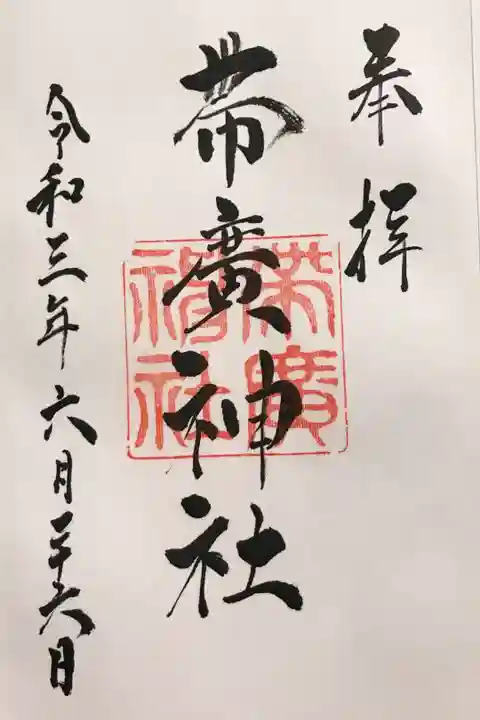 奉拝
帯廣神社
帯廣
神社
令和三年六月二十六日